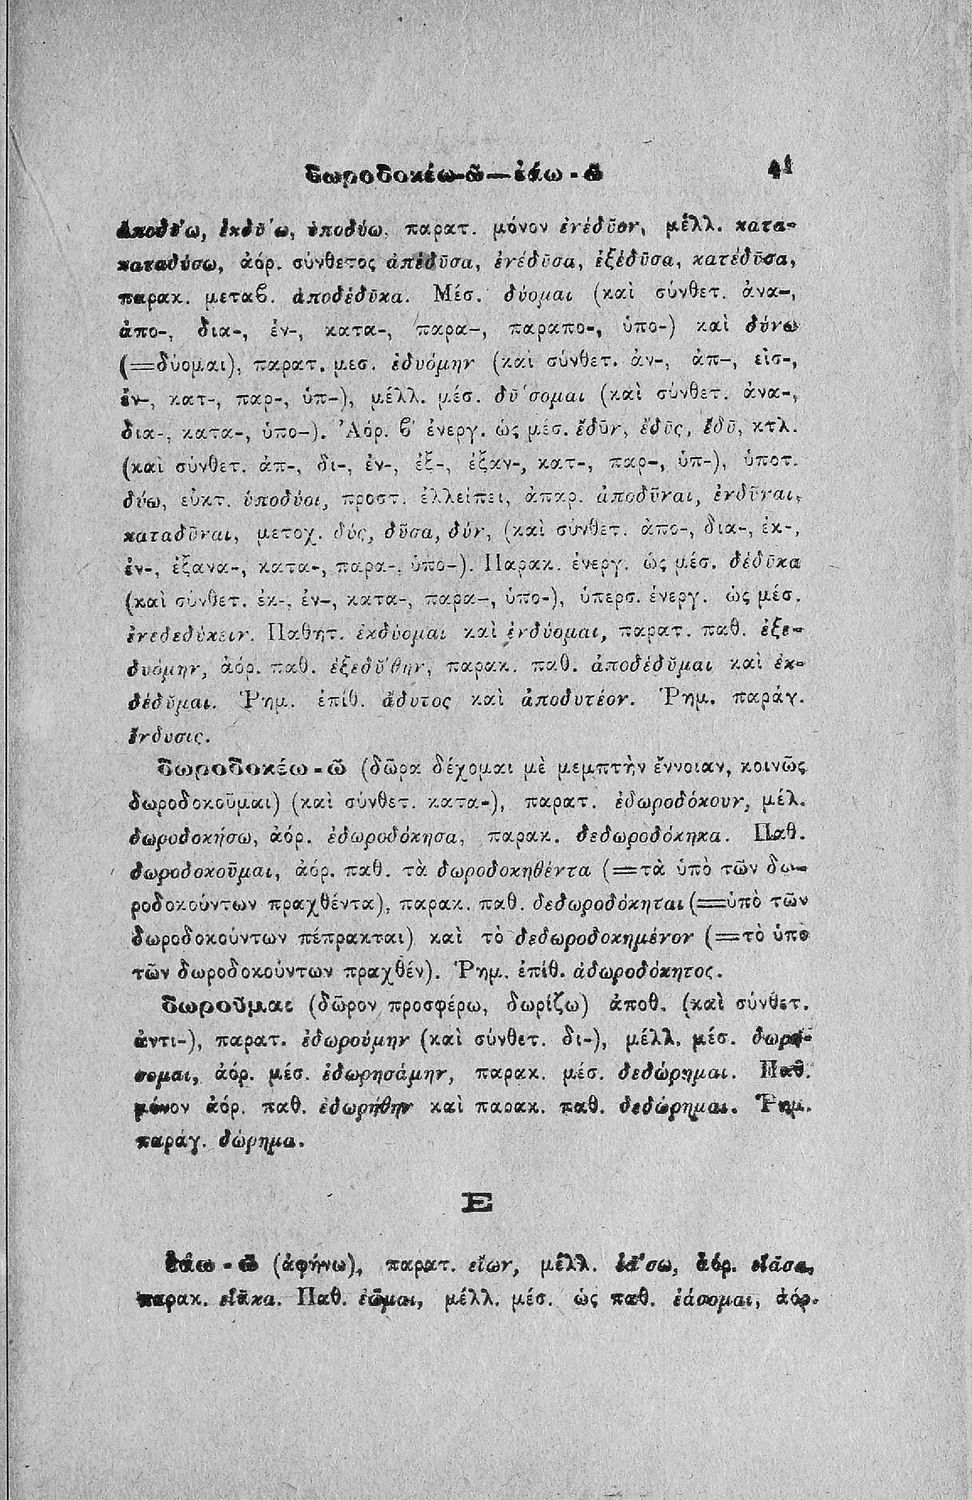 δωροδοκέω-ῶ—ἐάω-ῶ 41
ἀποδύ̄ω, ἐκδύ̄ω, ὑποδύω, παρατ. μόνον ἐνέδῡον, μέλλ. κατα-
καταδύσω, ἀόρ. σύνθετος ἀπέδῡσα, ἐνέδῡσα, ἐξέδῡσα, κατέδῡσα,
παρακ. μεταβ. ἀποδέδῡκα. Μέσ. δύομαι (καὶ σύνθετ. ἀνα-,
ἀπο-, δια-, ἐν-, κατα-, παρα-, παραπο-, ὑπο-) καὶ δύνω
(=δύομαι), παρατ. μεσ. ἐδυόμην (καὶ σύνθετ. ἀν-, ἀπ-, εἰσ-,
ἐν-, κατ-, παρ-, ὑπ-), μέλλ. μέσ. δύ̄σομαι (καὶ σύνθετ. ἀνα-,
δια-, κατα-, ὑπο-). Ἀόρ. β′ ἐνεργ. ὡς μέσ. ἔδῡν, ἔδῡς, ἔδῡ, κτλ.
(καὶ σύνθετ. ἀπ-, δι-, ἐν-, ἐξ-, ἐξαν-, κατ-, παρ-, ὑπ-), ὑποτ.
δύω, εὐκτ. ὑποδύοι, προστ. ἐλλείπει, ἀπαρ. ἀποδῦναι, ἐνδῦναι,
καταδῦναι, μετοχ. δύς, δῦσα, δύν, (καὶ σύνθετ. ἀπο-, δια-, ἐκ-,
ἐν-, ἐξανα-, κατα-, παρα-, ὑπο-). Παρακ. ἐνεργ. ὡς μέσ. δέδῡκα
(καὶ σύνθετ. ἐκ-, ἐν-, κατα-, παρα-, ὑπο-), ὑπερσ. ἐνεργ. ὡς μέσ.
ἐνεδεδύκειν. Παθητ. ἐκδύομαι καὶ ἐνδύομαι, παρατ. παθ. ἐξε-
δυόμην, ἀόρ. παθ. ἐξεδύ̆θην, παρακ. παθ. ἀποδέδῠμαι καὶ ἐκ-
δέδῠμαι. Ῥημ. ἐπίθ. ἄδυτος καὶ ἀποδυτέον. Ῥημ. παράγ.
ἔνδυσις.
δωροδοκέω-ῶ (δῶρα δέχομαι μὲ μεμπτὴν ἔννοιαν, κοινῶς
δωροδοκοῦμαι) (καὶ σύνθετ. κατα-), παρατ. ἐδωροδόκουν, μέλ.
δωροδοκήσω, ἀόρ. ἐδωροδόκησα, παρακ. δεδωροδόκηκα. Παθ.
δωροδοκοῦμαι, ἀόρ. παθ. τὰ δωροδοκηθέντα (=τὰ ὑπὸ τῶν δω-
ροδοκούντων πραχθέντα), παρακ. παθ. δεδωροδόκηται (=ὑπὸ τῶν
δωροδοκούντων πέπρακται) καὶ τὸ δεδωροδοκημένον (=τὸ ὑπὸ
τῶν δωροδοκούντων πραχθέν). Ῥημ. ἐπίθ. ἀδωροδόκητος.
δωροῦμαι (δῶρον προσφέρω, δωρίζω) ἀποθ. (καὶ σύνθετ.
ἀντι-), παρατ. ἐδωρούμην (καὶ σύνθετ. δι-), μέλλ. μέσ. δωρή-
σομαι, ἀόρ. μέσ. ἐδωρησάμην, παρακ. μέσ. δεδώρημαι. Παθ.
μόνον ἀόρ. παθ. ἐδωρήθην καὶ παρακ. παθ. δεδώρημαι. Ῥημ.
παράγ. δώρημα.
Ε
ἐάω-ῶ (ἀφήνω), παρατ. εἴων, μέλλ. ἐά̄σω, ἀόρ. εἴᾱσα,
παρακ. εἴᾱκα. Παθ. ἐῶμαι, μέλλ. μέσ. ὡς παθ. ἐάσομαι, ἀόρ.